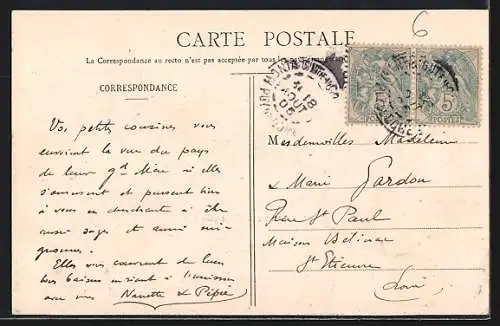 6
CARTE POSTALE
La Correspondance au recto n'est pas acceptée par tous
CORRESPONDANCE
Vos petites cousines vous
envoient la vue du pays
de leur gd Mère où elles
s'amusent et pensent bien
à vous en cherchant à être
aussi sages et aussi
Elles vous envoient de leurs
bons baisers à l'unisson
avec vous Nanette & Pépée
18
AOUT
5c
Mesdemoiselles Madeleine
& Marie Gardon
Rue St Paul
Maison
St Etienne
Loire